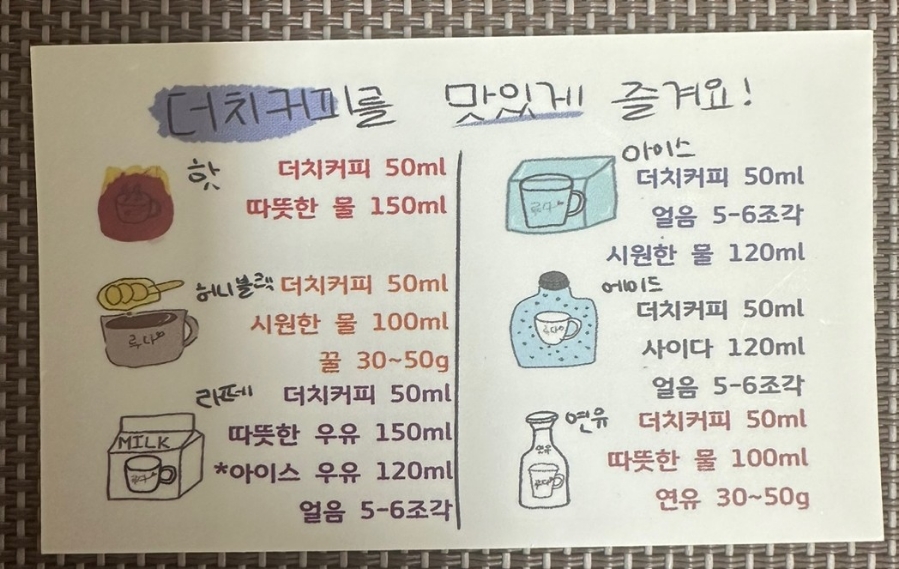 더치커피를 맛있게 즐겨요!
핫
더치커피 50ml
따뜻한 물 150ml
허니블랙
더치커피 50ml
시원한 물 100ml
꿀 30~50g
루나
라떼
더치커피 50ml
따뜻한 우유 150ml
*아이스 우유 120ml
얼음 5-6조각
MILK
아이스
더치커피 50ml
얼음 5-6조각
시원한 물 120ml
에이드
더치커피 50ml
사이다 120ml
얼음 5-6조각
연유
더치커피 50ml
따뜻한 물 100ml
연유 30~50g
연유